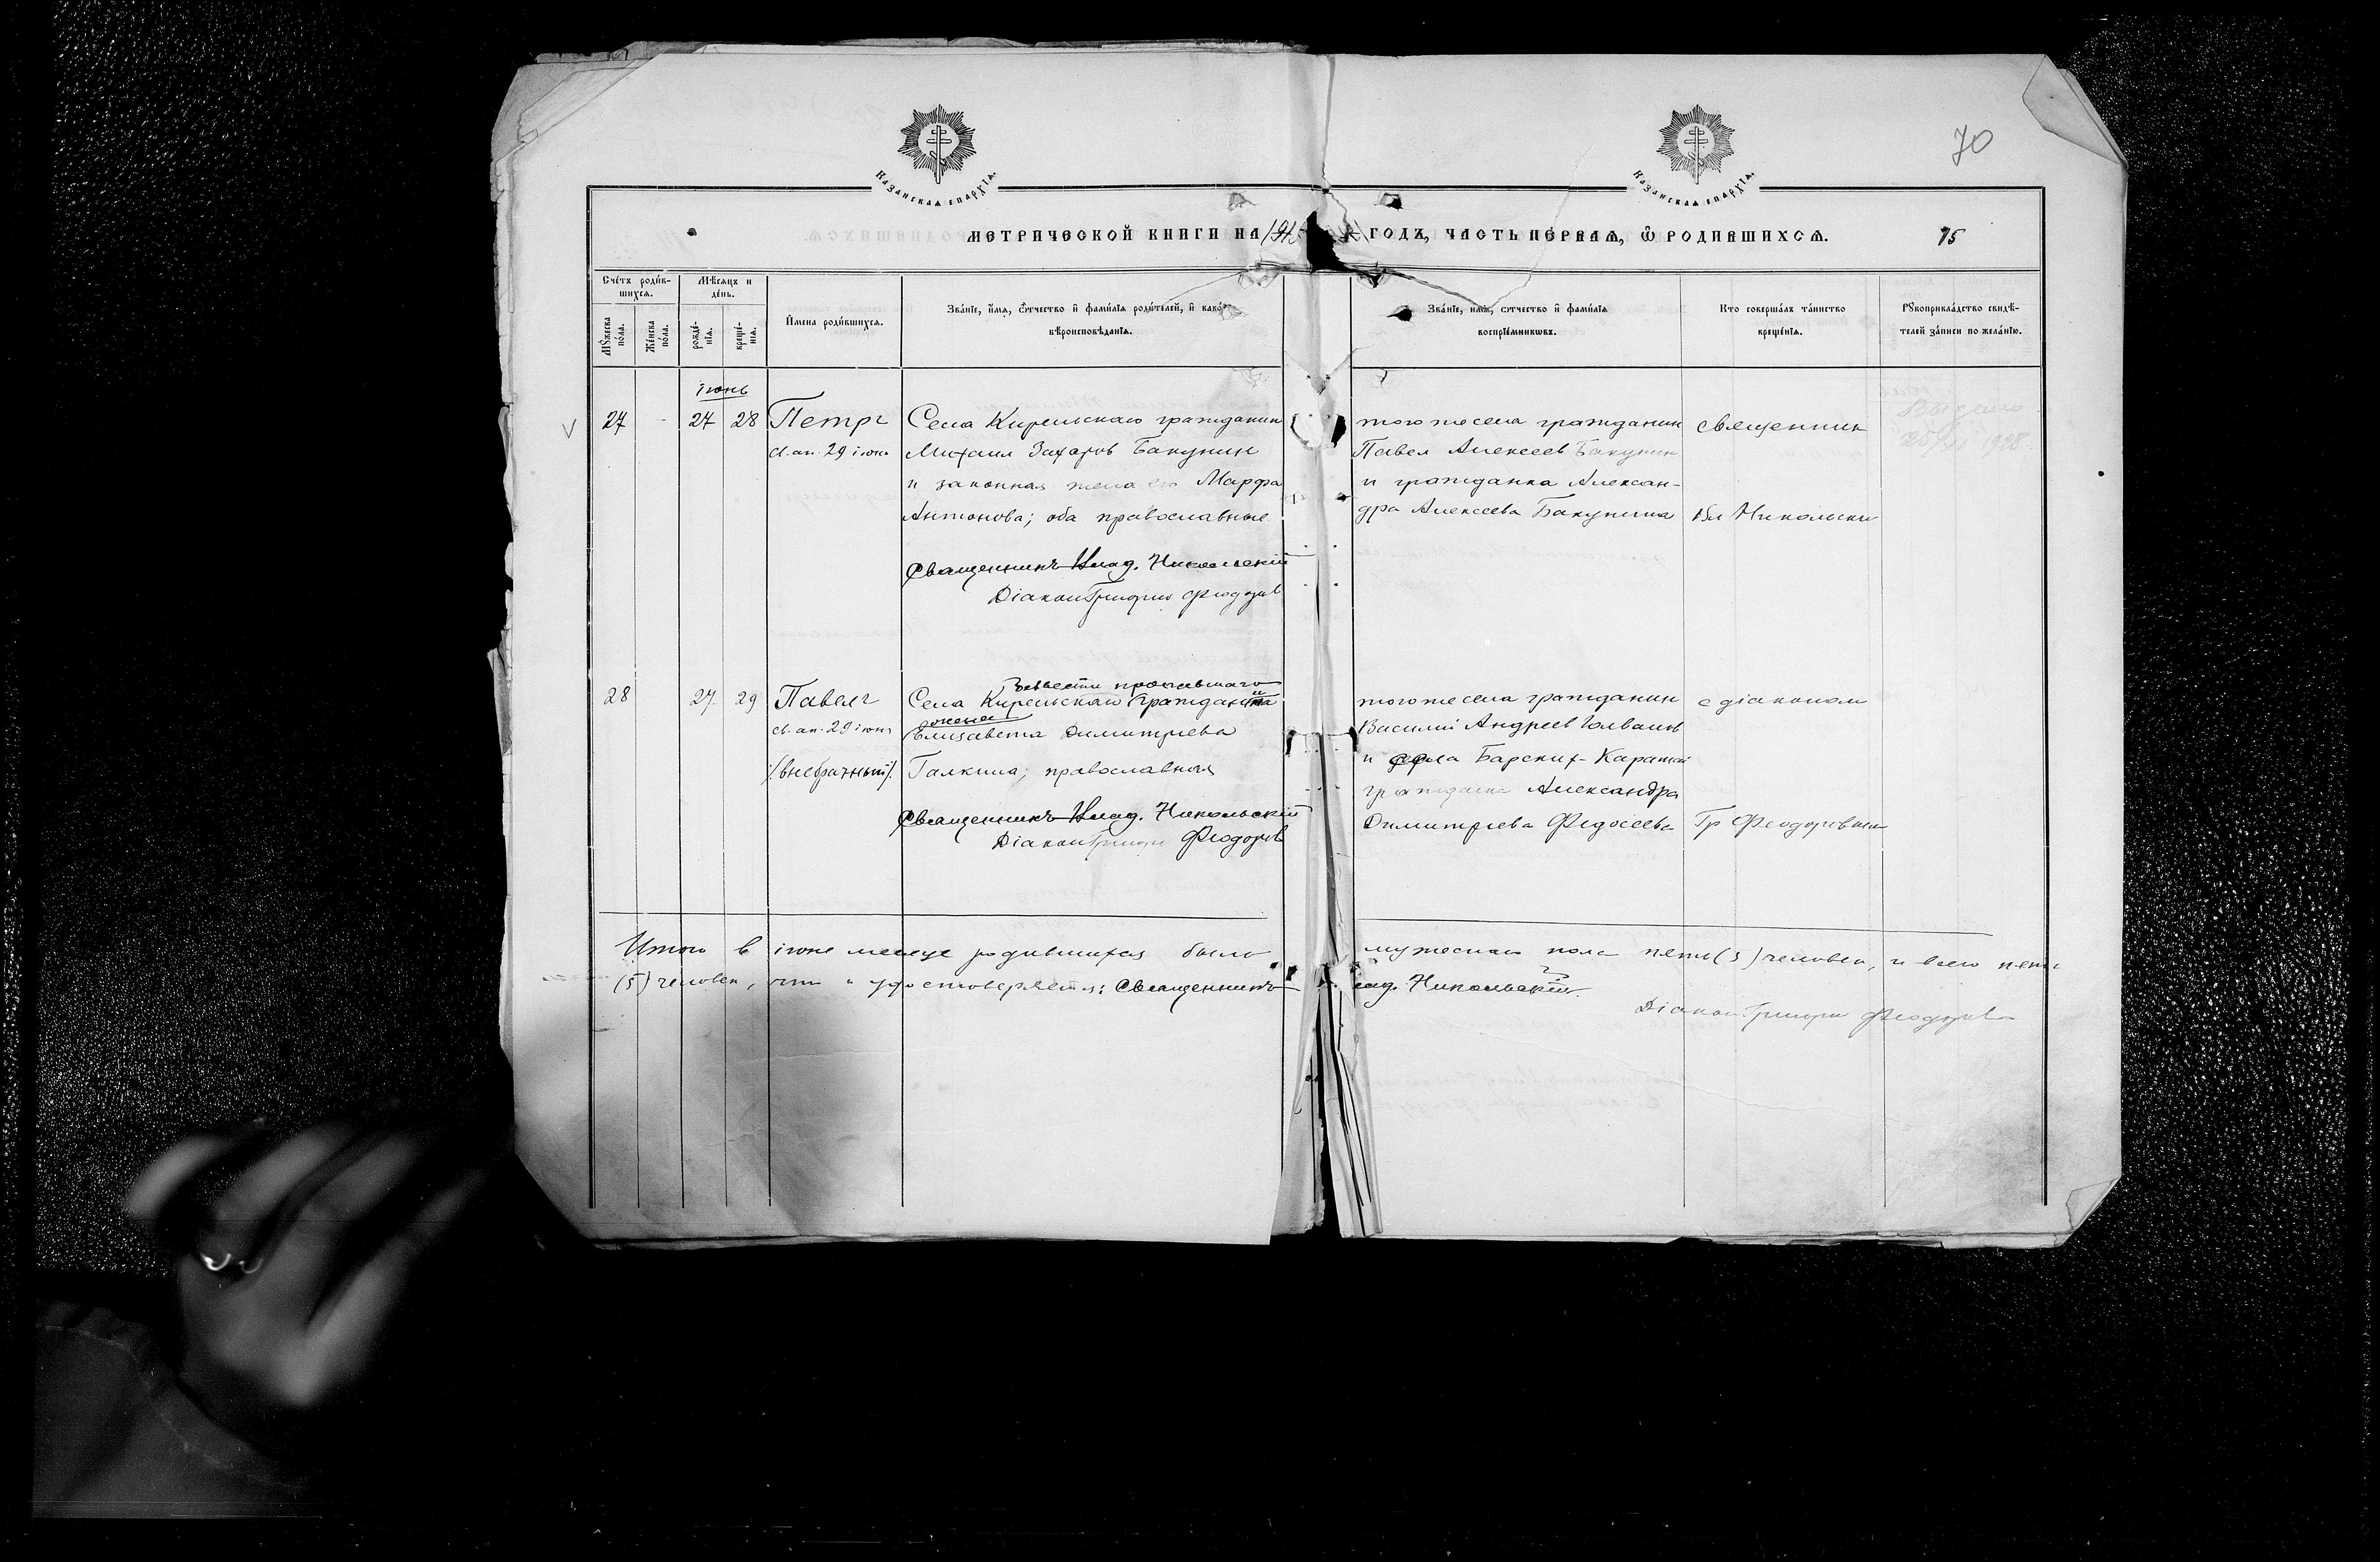 Казанская епархія.
Казанская епархія.
70
МЕТРИЧЕСКОЙ КНИГИ НА 191
ГОДЪ, ЧАСТЬ ПЕРВАЯ, Ѡ РОДИВШИХСЯ.
75
Счётъ родив-
шихся.
Мужеска
пола.
Женска
пола.
Мѣсяцъ и
день.
рожде-
нія.
креще-
нія.
Имена родившихся.
Званіе, имя, отчество и фамилія родителей, и какого
вѣроисповѣданія.
Званіе, имя, отчество и фамилія
воспріемниковъ.
Кто совершалъ таинство
крещенія.
Рукоприкладство свидѣ-
телей записи по желанію.
іюнь
27 - 27 28 Петръ
св. ап. 29 іюня
Села Кирельскаго гражданин
Михаил Захаров Бакунин
и законная жена его Марфа
Антонова; оба православные
Священникъ Влад. Никольскій
Діакон Григорий Феодоров
того же села гражданин
Павел Алексеев Бакунин
и гражданка Алексан-
дра Алексеева Бакунина
священник
Вл Никольски
28 27 29 Павелъ
св. ап. 29 іюня
/внебрачный/.
Безвести пропавшаго
Села Кирельскаго гражданина
жена
Елисавета Димитриева
Галкина; православная
Священникъ Влад. Никольскій
Діакон Григори Феодоров
того же села гражданин
Василий Андреев
и села Барских-Каратай
гражданка Александра
Димитриева Федосеева
с діаконом
Гр Феодоровым
Итого в іюне месяце родившихся было мужескаго пола пять (5) человек, и всего пять
(5) человек, что и удостоверяется: Священникъ Влад. Никольскій.
Діакон Григори Феодоров